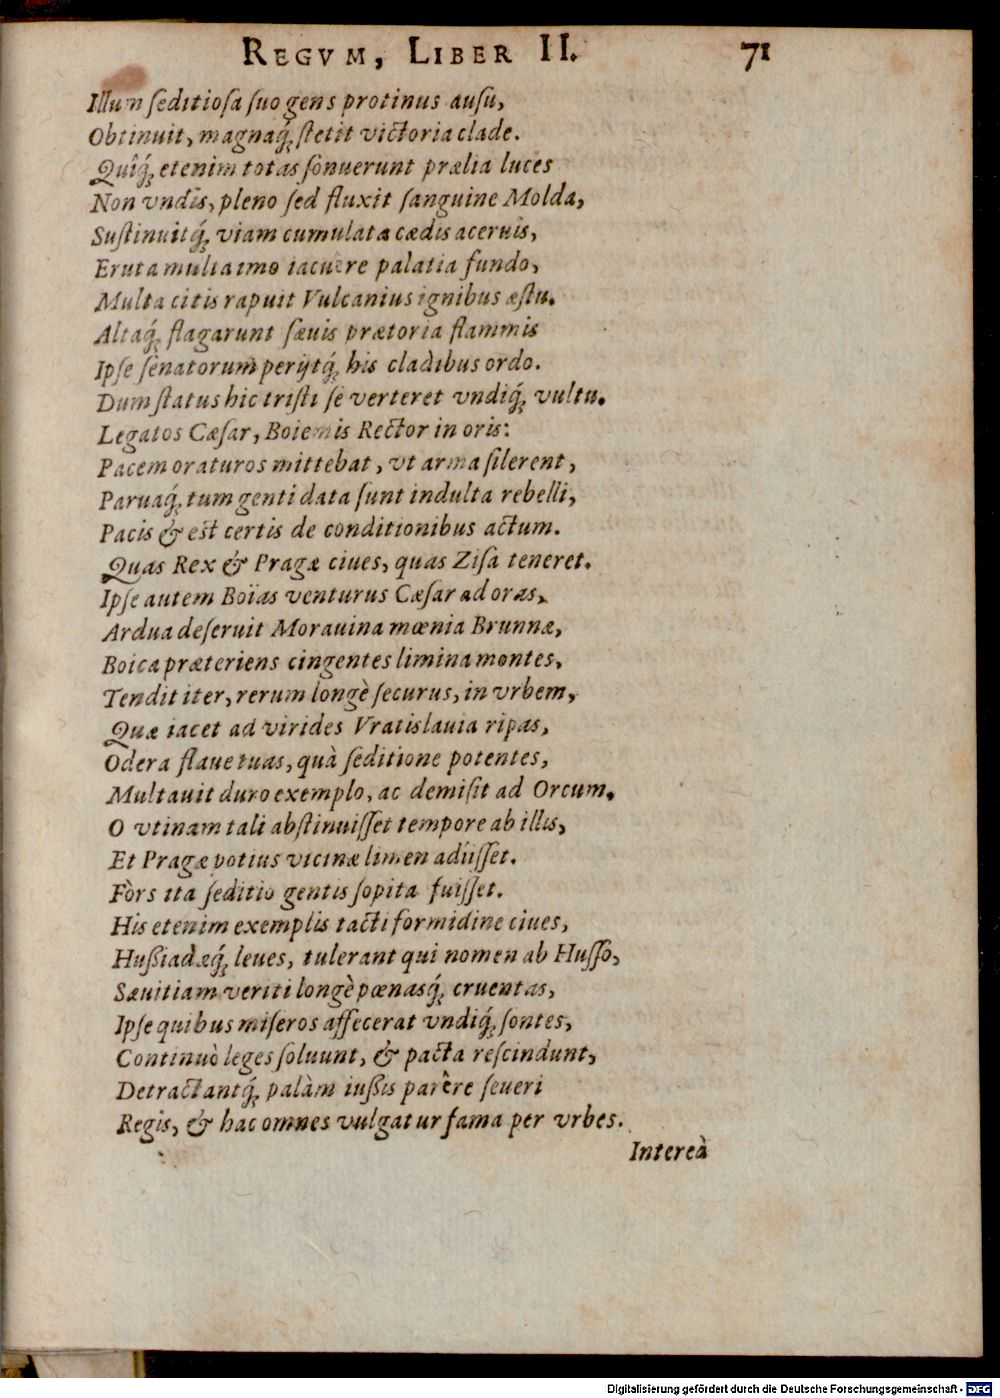 REGVM, LIBER II. 71
Illum ſeditioſa ſuo gens protinus auſu,
Obtinuit, magnaq́; ſtetit victoria clade.
Quîq́; etenim totas ſonuerunt prælia luces
Non vndis, pleno ſed fluxit ſanguine Molda,
Suſtinuitq́; viam cumulata cædis aceruis,
Eruta multa imo iacuêre palatia fundo,
Multa citis rapuit Vulcanius ignibus æſtu.
Altaq́; flagarunt ſæuis prætoria flammis
Ipſe ſenatorum perijtq́; his cladibus ordo.
Dum ſtatus hic triſti ſe verteret vndiq́; vultu.
Legatos Cæſar, Boiemis Rector in oris:
Pacem oraturos mittebat, vt arma ſilerent,
Paruaq́; tum genti data ſunt indulta rebelli,
Pacis & est certis de conditionibus actum.
Quas Rex & Pragæ ciues, quas Ziſa teneret.
Ipſe autem Boïas venturus Cæſar ad oras,
Ardua deſeruit Morauina mœnia Brunnæ,
Boica præteriens cingentes limina montes,
Tendit iter, rerum longè ſecurus, in vrbem,
Quæ iacet ad virides Vratislauia ripas,
Odera flaue tuas, quà ſeditione potentes,
Multauit duro exemplo, ac demiſit ad Orcum.
O vtinam tali abſtinuiſſet tempore ab illis,
Et Pragæ potius vicinæ limen adiiſſet.
Fòrs ita ſeditio gentis ſopita fuiſſet.
His etenim exemplis tacti formidine ciues,
Hußiadæq́; leues, tulerant qui nomen ab Huſſo,
Sæuitiam veriti longè pœnasq́; cruentas,
Ipſe quibus miſeros affecerat vndiq́; ſontes,
Continuò leges ſoluunt, & pacta reſcindunt,
Detractantq́; palàm iußis parêre ſeueri
Regis, & hac omnes vulgatur fama per vrbes.
Intereà
Digitalisierung gefördert durch die Deutsche Forschungsgemeinschaft - DFG